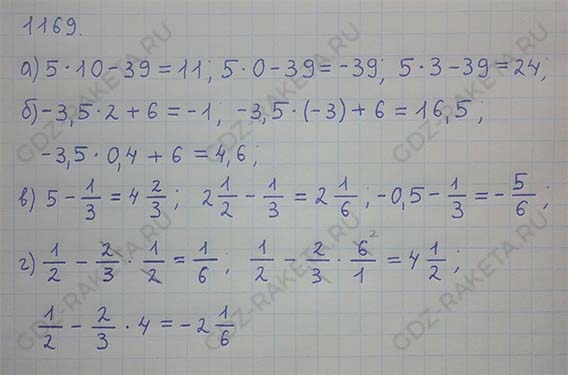 1169.
а) 5·10-39=11; 5·0-39=-39; 5·3-39=24;
б) -3,5·2+6=-1; -3,5·(-3)+6=16,5;
-3,5·0,4+6=4,6;
в) 5-1/3=4 2/3; 2 1/2-1/3=2 1/6; -0,5-1/3=-5/6;
г) 1/2-2/3·1/2=1/6; 1/2-2/3·6/1 2=4 1/2;
1/2-2/3·4=-2 1/6
GDZ-RAKETA.RU